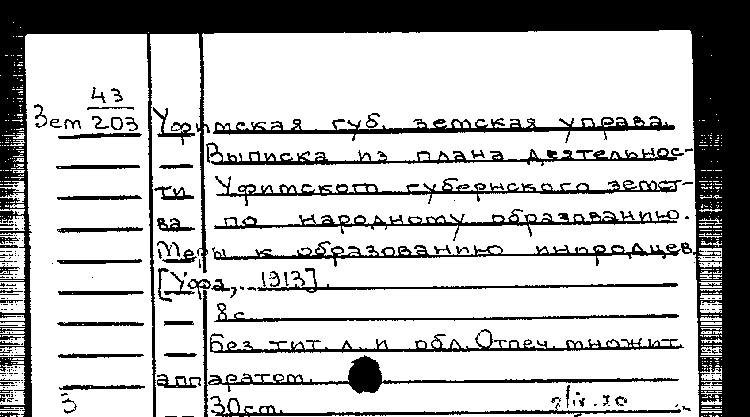 43
Зем 203 Уфимская губ. земская управа.
Выписка из плана деятельнос-
ти Уфимского губернского земст-
ва по народному образованию.
Меры к образованию инородцев.
[Уфа, 1913].
8с.
Без тит. л. и обл. Отпеч. множит.
аппаратом.
30см.